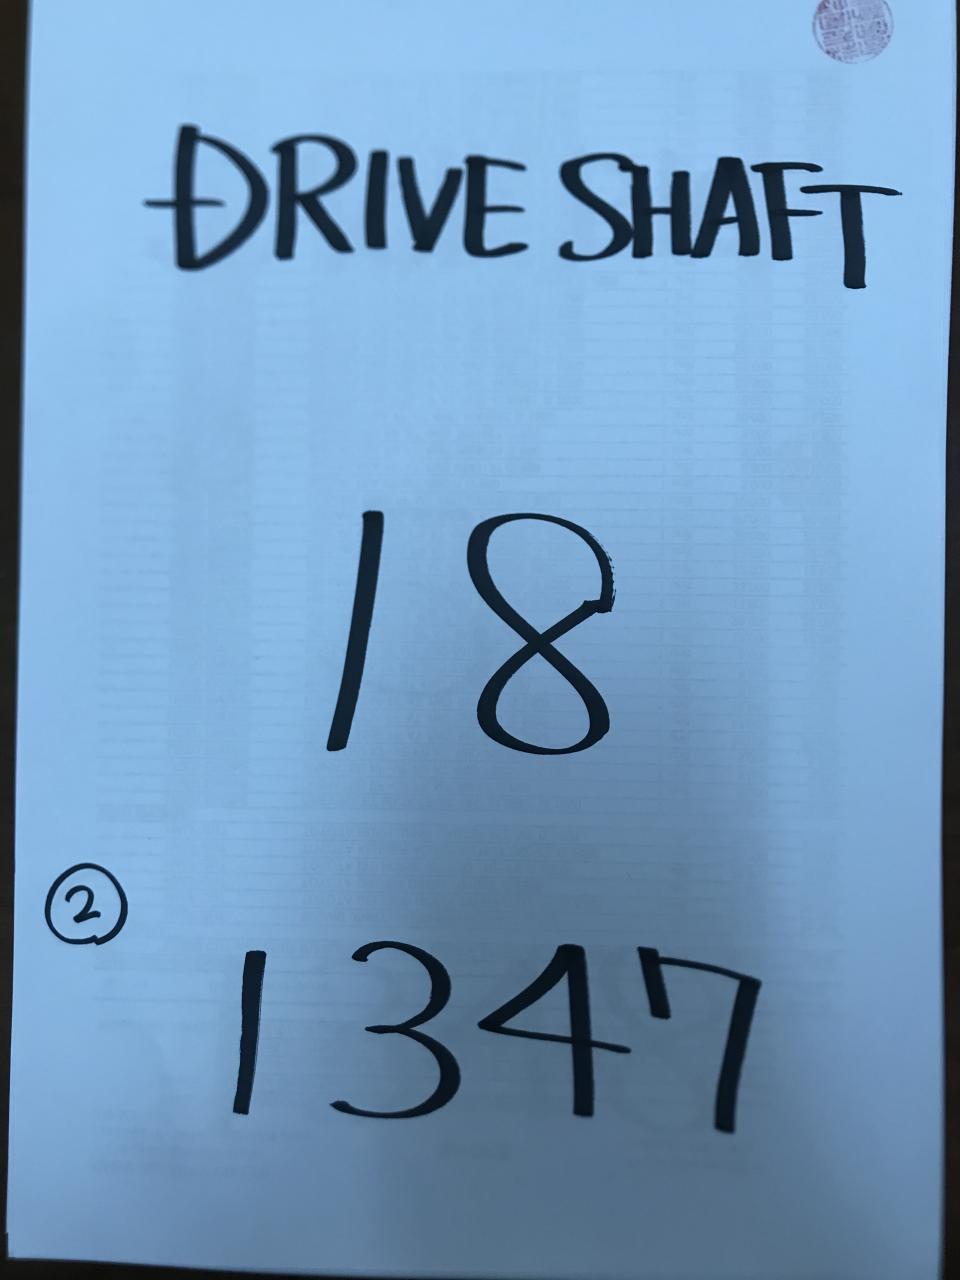 DRIVE SHAFT
18
②
1347